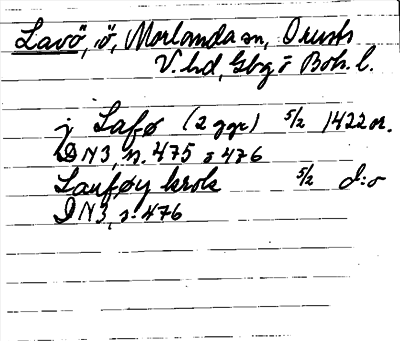 Lavö, ö, Morlanda sn, Orusts
V. hd, Gbg o Boh. l.
j Lafø (2 ggr) 5/2 1422 or.
DN3, s. 475 o 476
Lauføy krok 5/2 d:o
DN3, s. 476